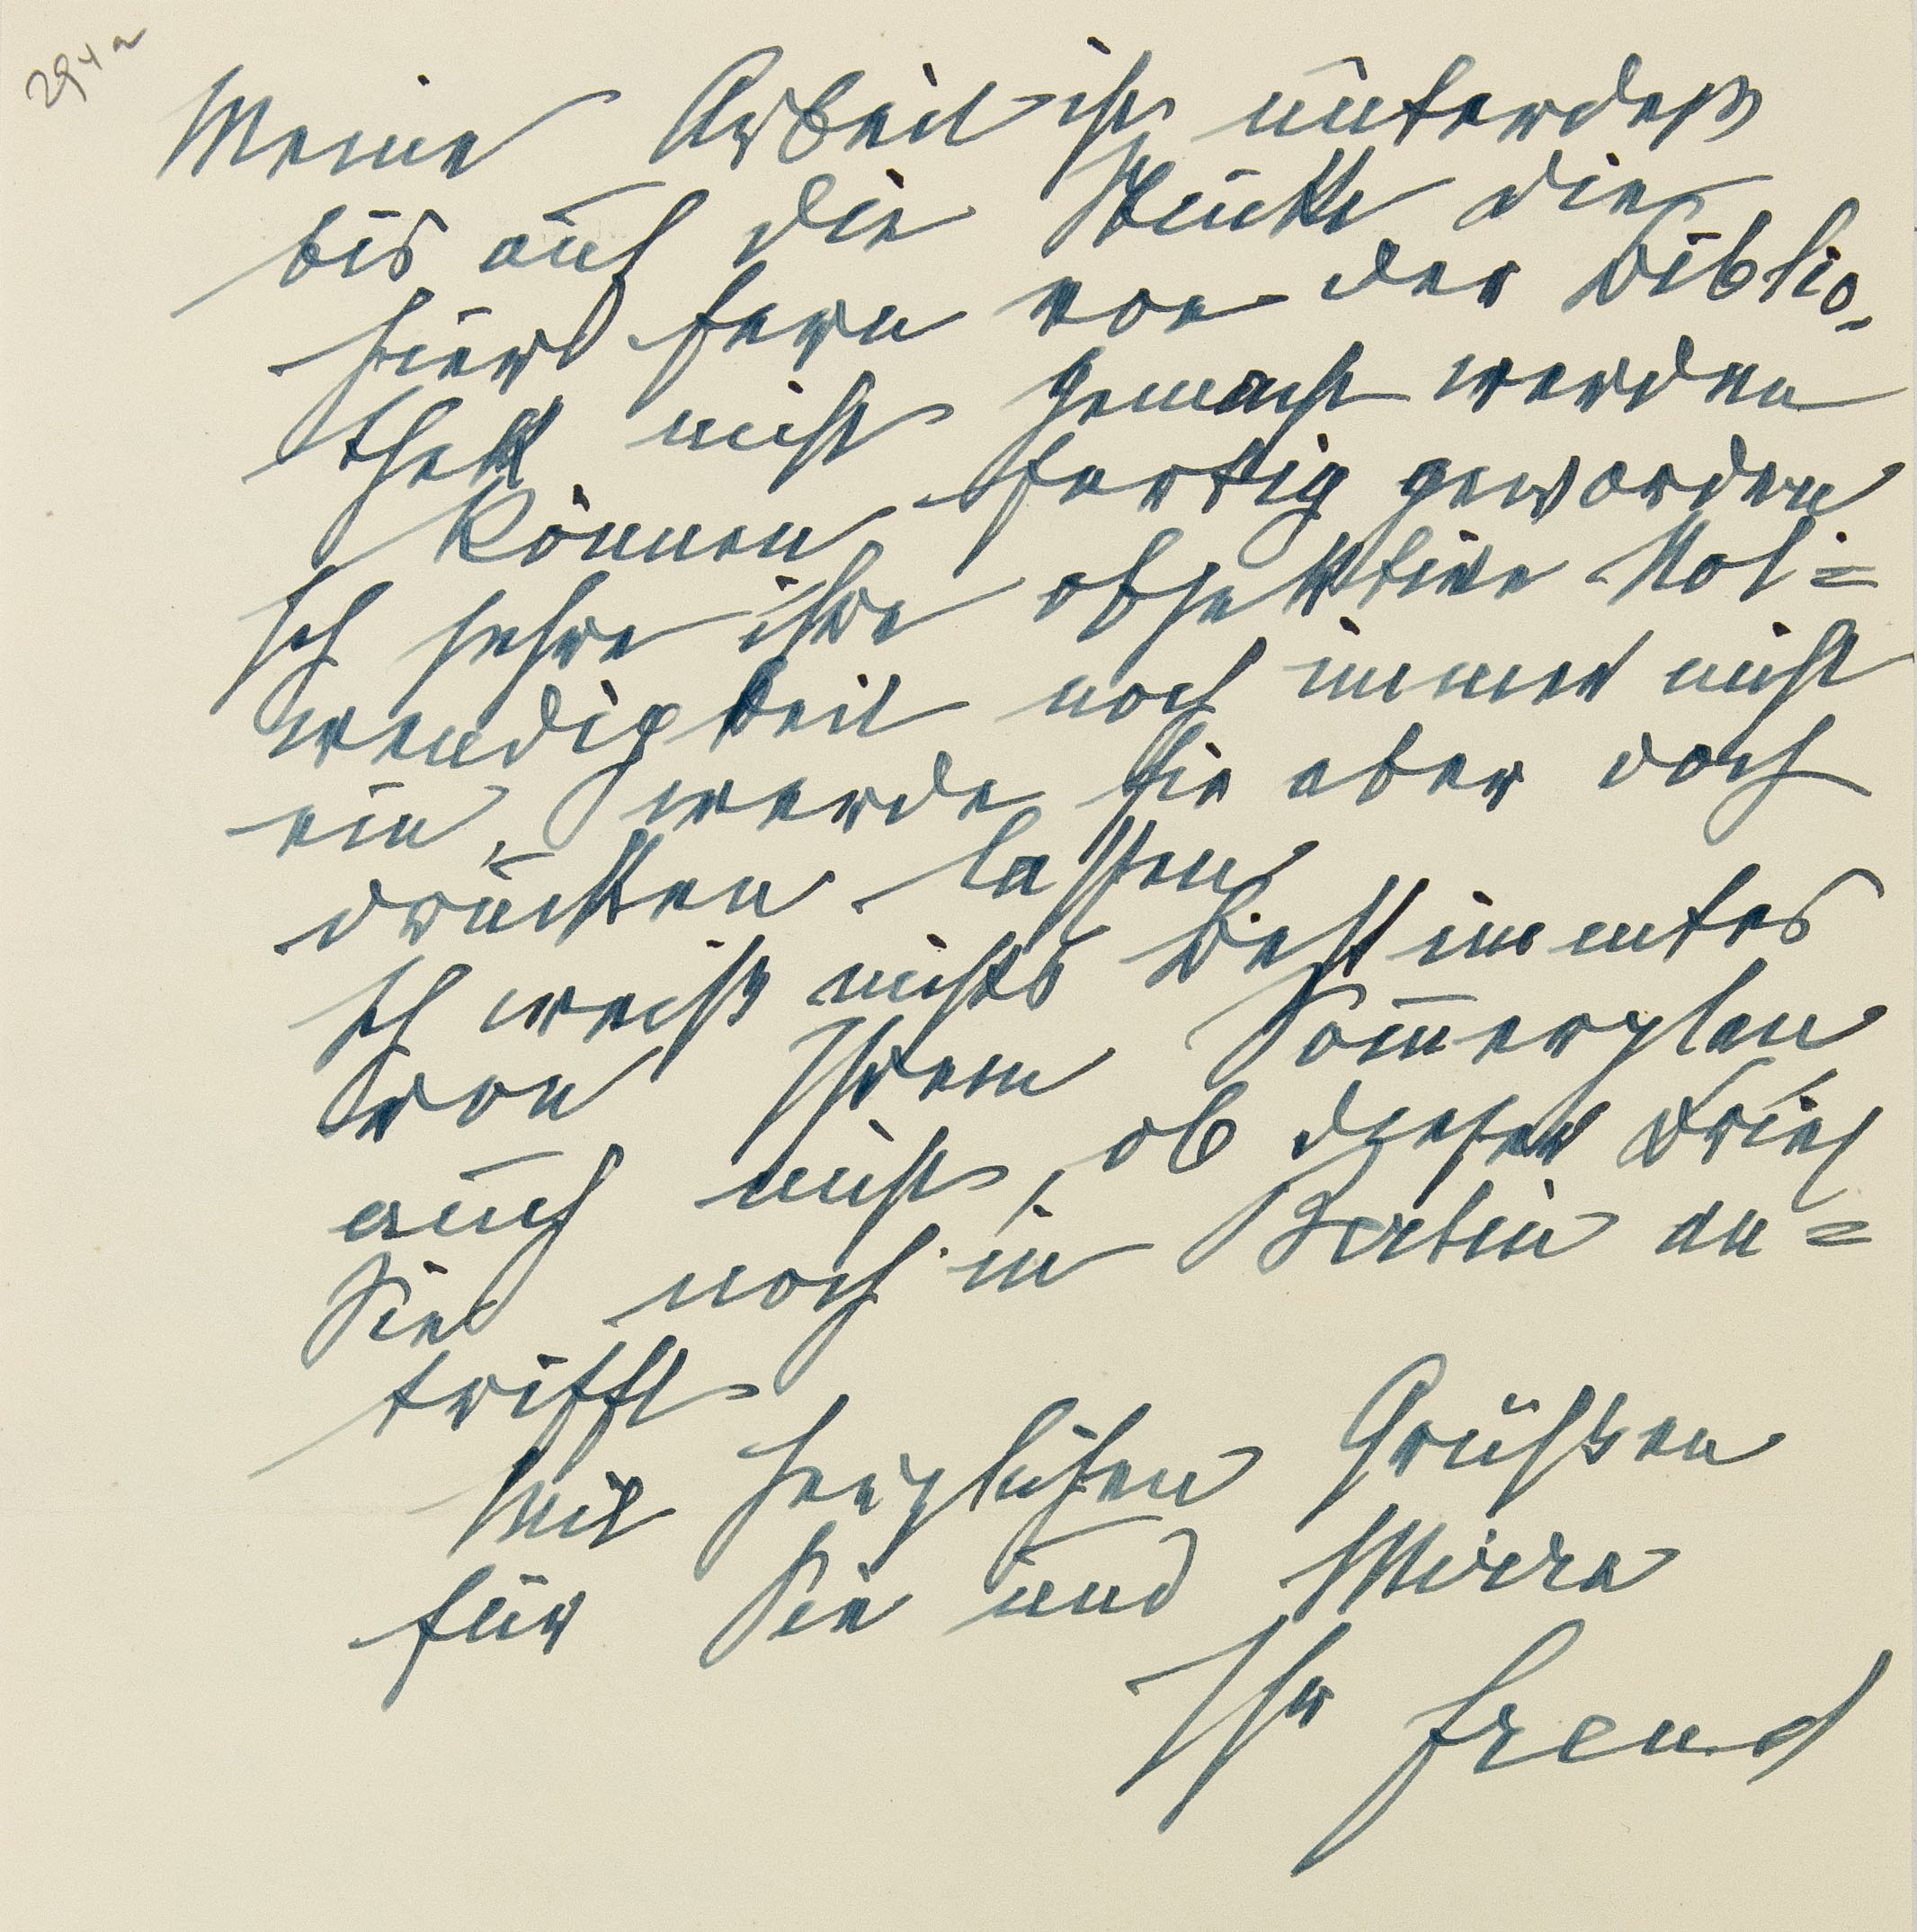 294 a
Meine Arbeit ist unterdeß
bis auf die Stücke die
hier fern von der Biblio-
thek nicht gemacht werden
können fertig geworden
Ich sehe ihre objektive Not=
wendigkeit noch immer nicht
ein, werde sie aber doch
drucken lassen
Ich weiß nichts Bestimmtes
von Ihrem Som̅erplan
auch nicht, ob dieser Brief
Sie noch in Berlin an=
trifft
Mit herzlichen Grüßen
für Sie und Mirra
Ihr Freud